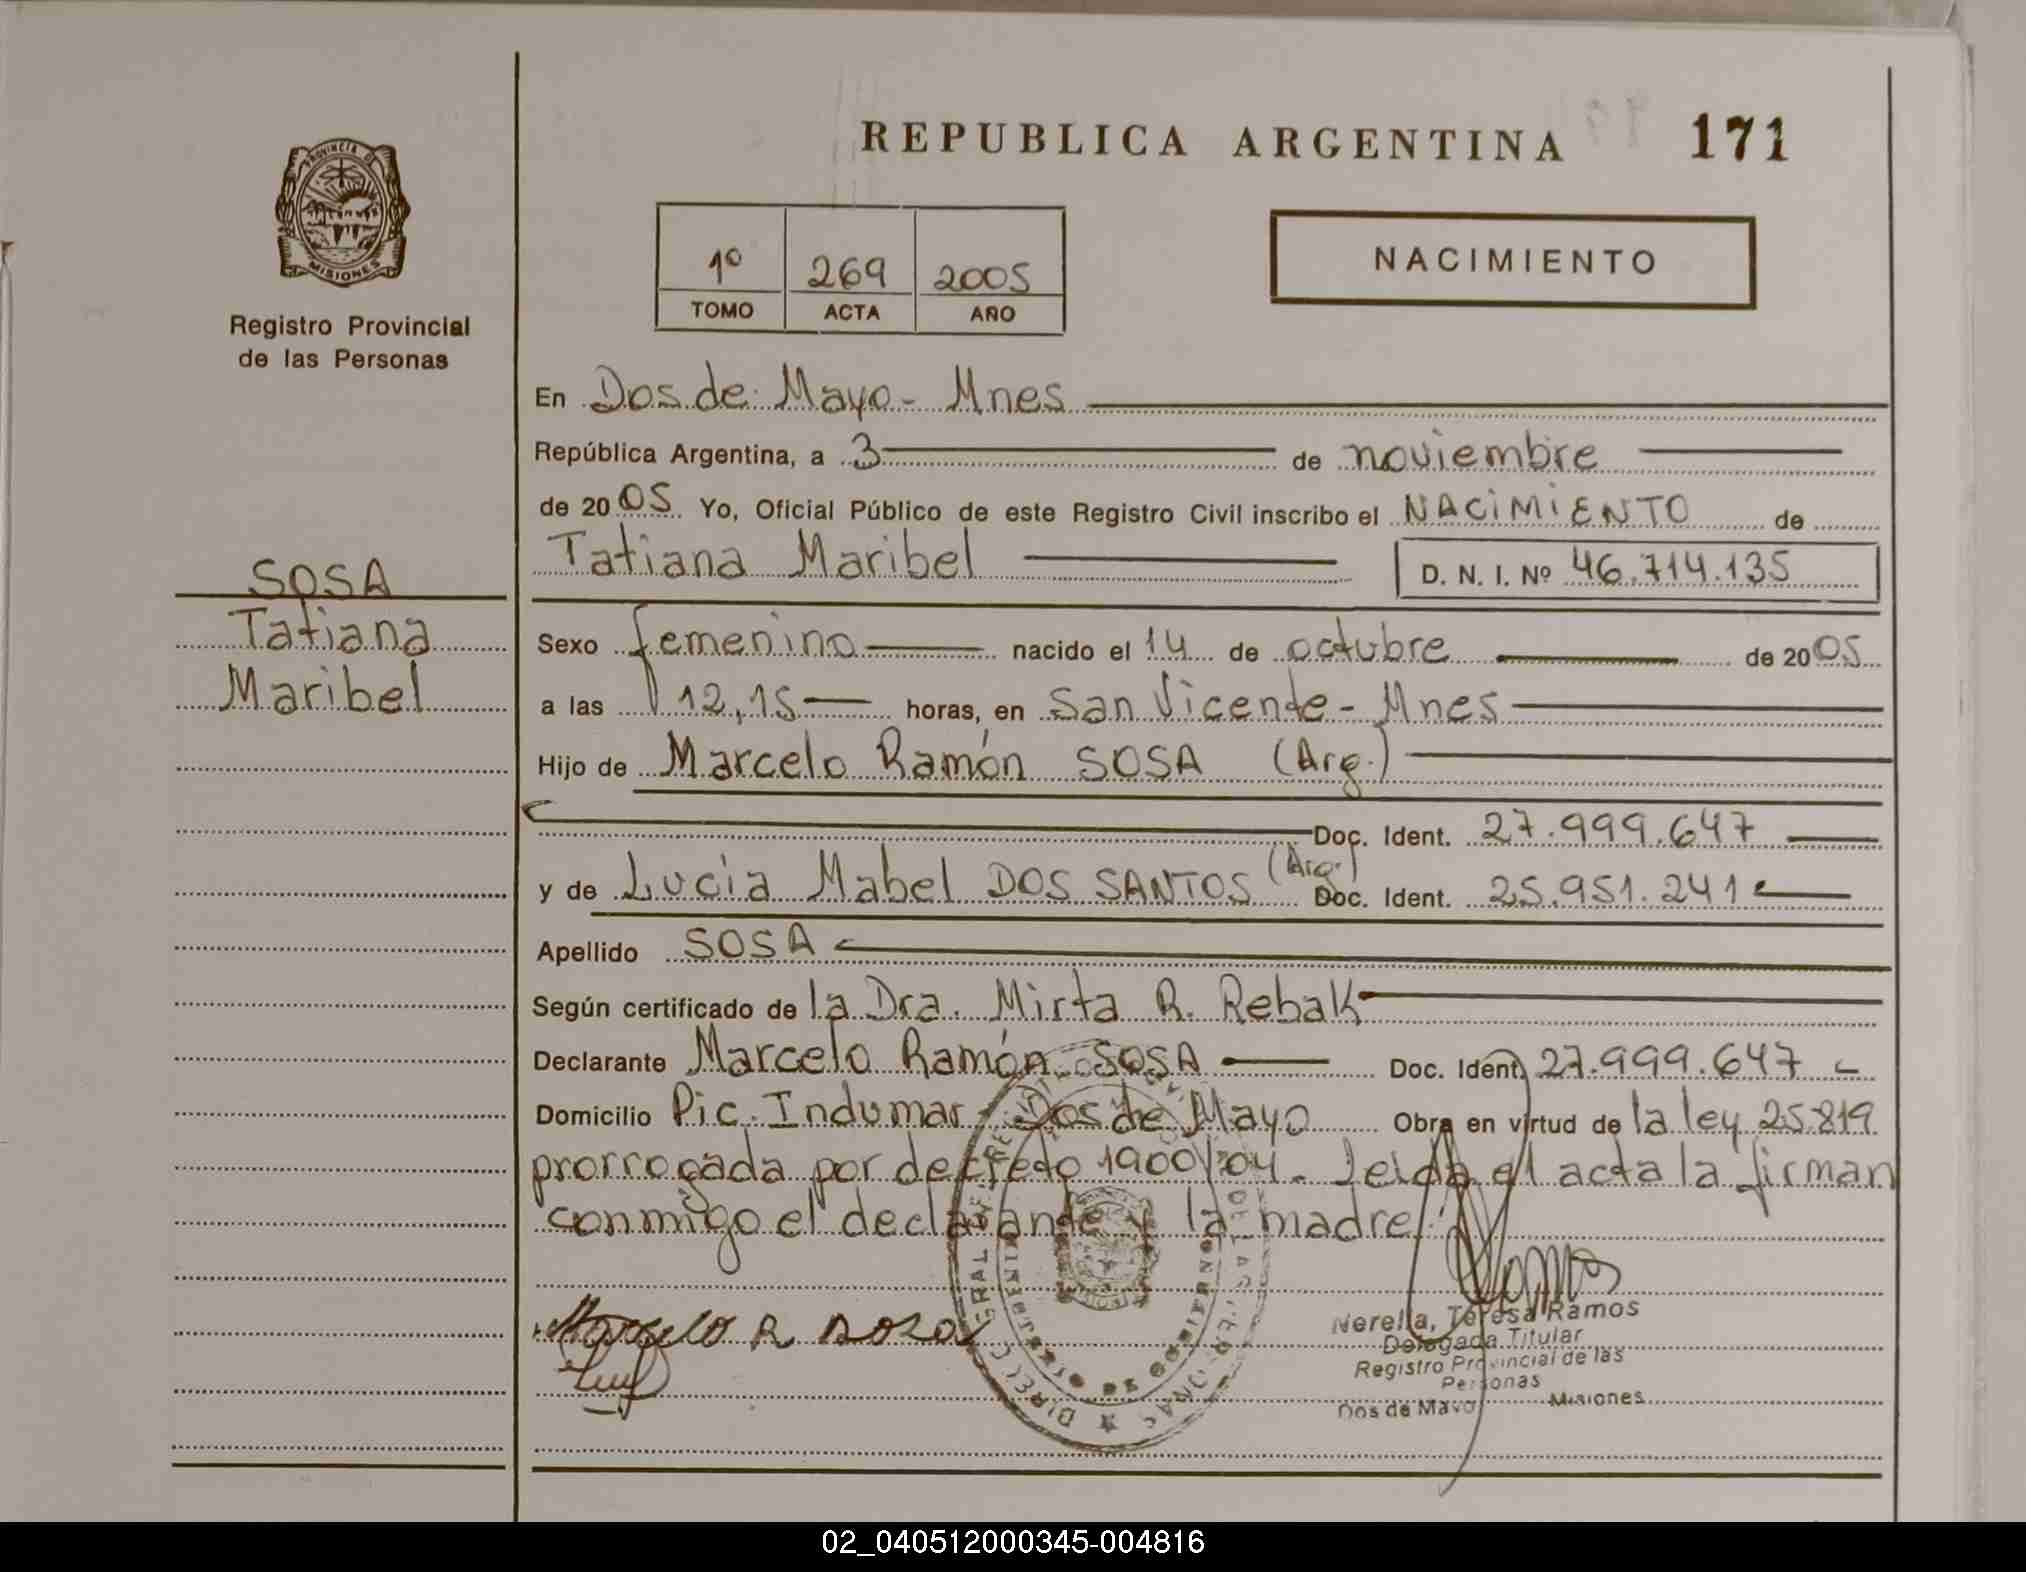 PROVINCIA DE
MISIONES
Registro Provincial
de las Personas
SOSA
Tatiana
Maribel
REPUBLICA ARGENTINA 171
1º 269 2005
TOMO ACTA AÑO
NACIMIENTO
En Dos de Mayo - Mnes
República Argentina, a 3 de noviembre
de 2005 Yo, Oficial Público de este Registro Civil inscribo el NACIMIENTO de
Tatiana Maribel D. N. I. Nº 46.714.135
Sexo femenino nacido el 14 de octubre de 2005
a las 12,15 horas, en San Vicente - Mnes
Hijo de Marcelo Ramón SOSA (Arg.)
Doc. Ident. 27.999.647
y de Lucia Mabel DOS SANTOS (Arg.) Doc. Ident. 25.951.241
Apellido SOSA
Según certificado de la Dra. Mirta R. Rebak
Declarante Marcelo Ramón SOSA Doc. Ident. 27.999.647
Domicilio Pic. Indumar - Dos de Mayo Obra en virtud de la ley 25.819
prorrogada por decreto 1900/04. Leida el acta la firman
conmigo el declarante y la madre.
Marcelo R Sosa
Nerella, Teresa Ramos
Delegada Titular
Registro Provincial de las
Personas
Dos de Mayo Misiones
02_040512000345-004816